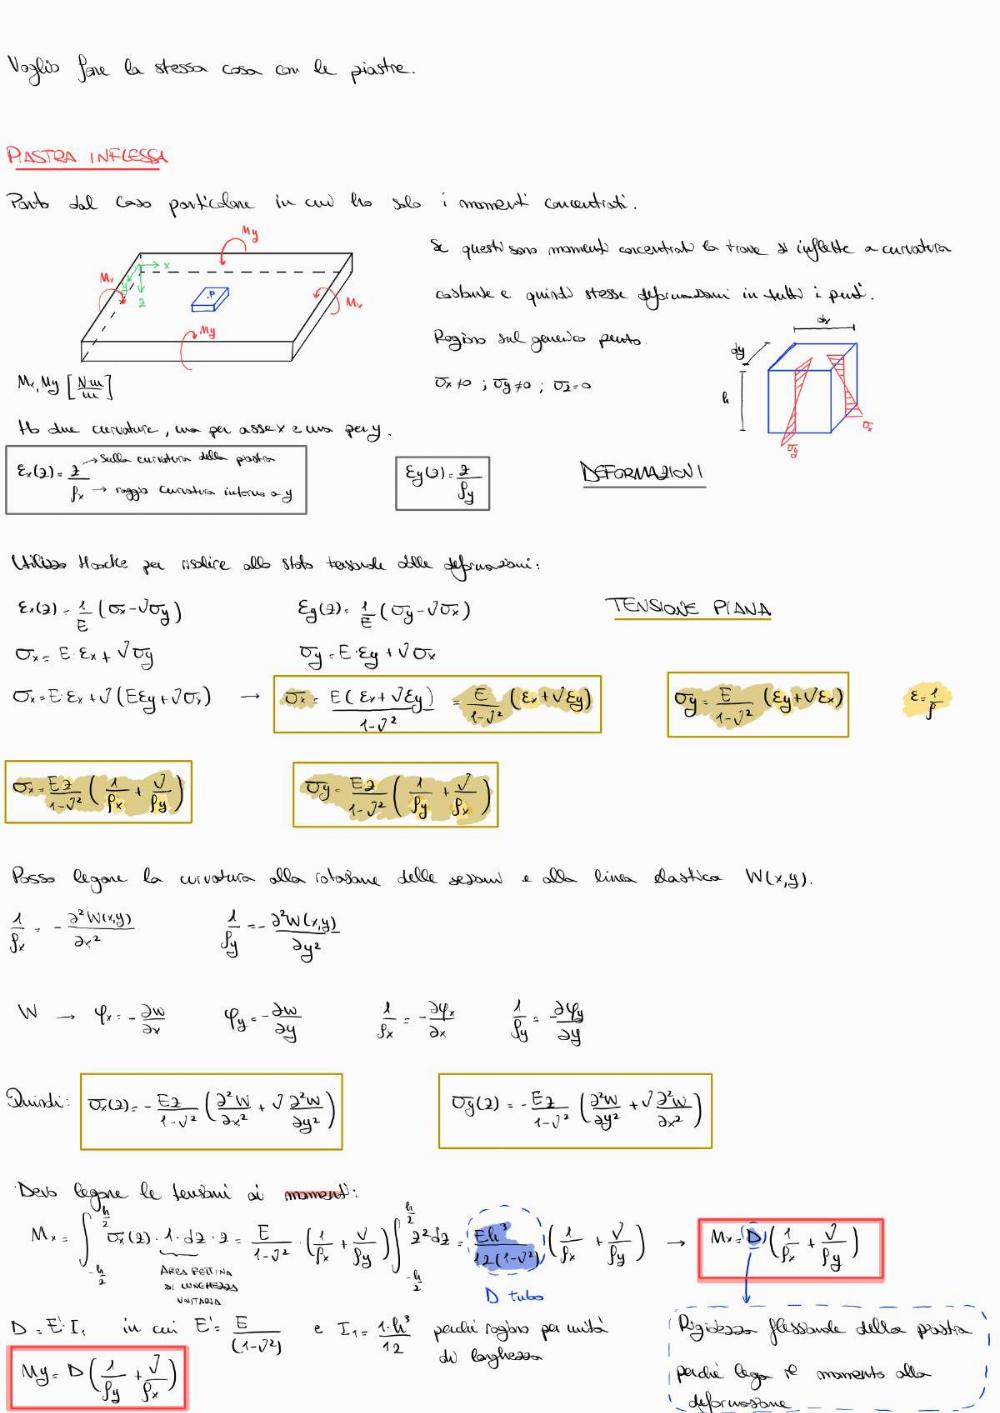 Voglio fare la stessa cosa con le piastre.
PIASTRA INFLESSA
Parto dal caso particolare in cui ho solo i momenti concentrati.
My
Mx
x
y
z
P
Mx
My
Se questi sono momenti concentrati la trave si inflette a curvatura
costante e quindi stesse deformazioni in tutti i punti.
Ragiono sul generico punto.
σx≠0 ; σy≠0 ; σz=0
dx
dy
h
σx
σy
Mx, My [Nm/m]
Ho due curvature, una per asse x e una per y.
εx(z) = z/ρx → sulla curvatura della piastra
→ raggio curvatura intorno a y
εy(z) = z/ρy
DEFORMAZIONI
Utilizzo Hooke per risalire allo stato tensionale dalle deformazioni:
εx(z) = 1/E (σx-νσy)
εy(z) = 1/E (σy-νσx)
TENSIONE PIANA
σx = E·εx + νσy
σy = E·εy + νσx
σx = E·εx + ν(Eεy + νσx) → σx = E(εx + νεy)/(1-ν²) = E/(1-ν²) (εx + νεy)
σy = E/(1-ν²) (εy + νεx)
ε = 1/ρ
σx = Ez/(1-ν²) (1/ρx + ν/ρy)
σy = Ez/(1-ν²) (1/ρy + ν/ρx)
Posso legare la curvatura alla rotazione delle sezioni e alla linea elastica W(x,y).
1/ρx = - ∂²W(x,y)/∂x²
1/ρy = - ∂²W(x,y)/∂y²
W → φx = - ∂w/∂x
φy = - ∂w/∂y
1/ρx = - ∂φx/∂x
1/ρy = - ∂φy/∂y
Quindi: σx(z) = - Ez/(1-ν²) (∂²W/∂x² + ν ∂²W/∂y²)
σy(z) = - Ez/(1-ν²) (∂²W/∂y² + ν ∂²W/∂x²)
Devo legare le tensioni ai momenti:
Mx = ∫_{-h/2}^{h/2} σx(z)·1·dz·z = E/(1-ν²) · (1/ρx + ν/ρy) ∫_{-h/2}^{h/2} z² dz = Eh³/12(1-ν²) (1/ρx + ν/ρy) → Mx = D (1/ρx + ν/ρy)
AREA FETTINA
DI LUNGHEZZA
UNITARIA
D tubo
D = E'·I₁ in cui E' = E/(1-ν²) e I₁ = 1·h³/12 perché ragiono per unità
di larghezza
Rigidezza flessionale della piastra
perché lega il momento alla
deformazione
My = D (1/ρy + ν/ρx)